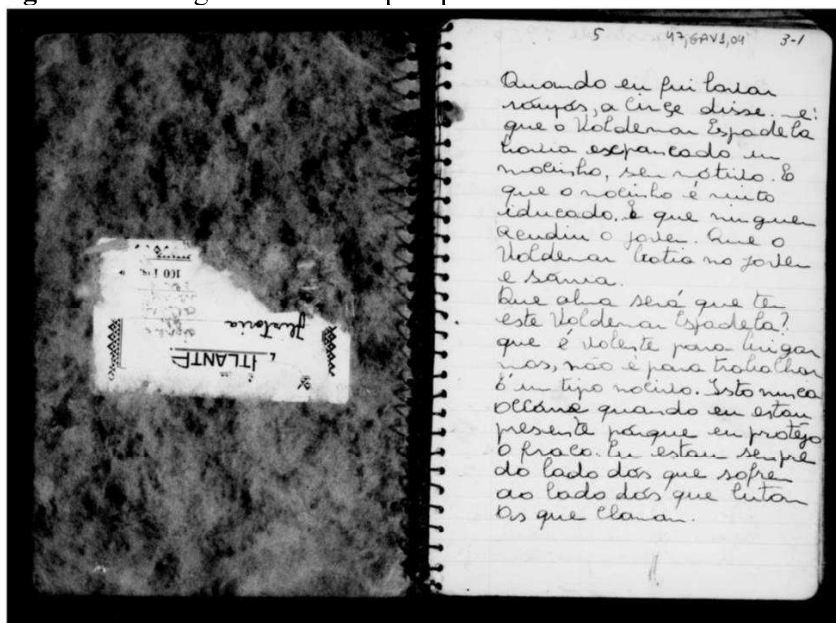 5 47,GAV1,04 3-1
Quando eu fui lavar
roupas, a Cirçe disse-me:
que o Voldemar Espadela
havia espancado um
mocinho, sem motivo. E
que o mocinho é muito
iducado. E que ninguem
acudiu o jovem. Que o
Voldemar batia no jovem
e sorria.
Que alma será que tem
este Voldemar Espadela?
que é valente para brigar
mas, não é para trabalhar
é um tipo nocivo. Isto nunca
occorre quando eu estou
presente porque eu protejo
o fraco. Eu estou sempre
do lado dos que sofrem
ao lado dos que lutam
os que clamam.
100 Fls.
Historia
ATLANTE